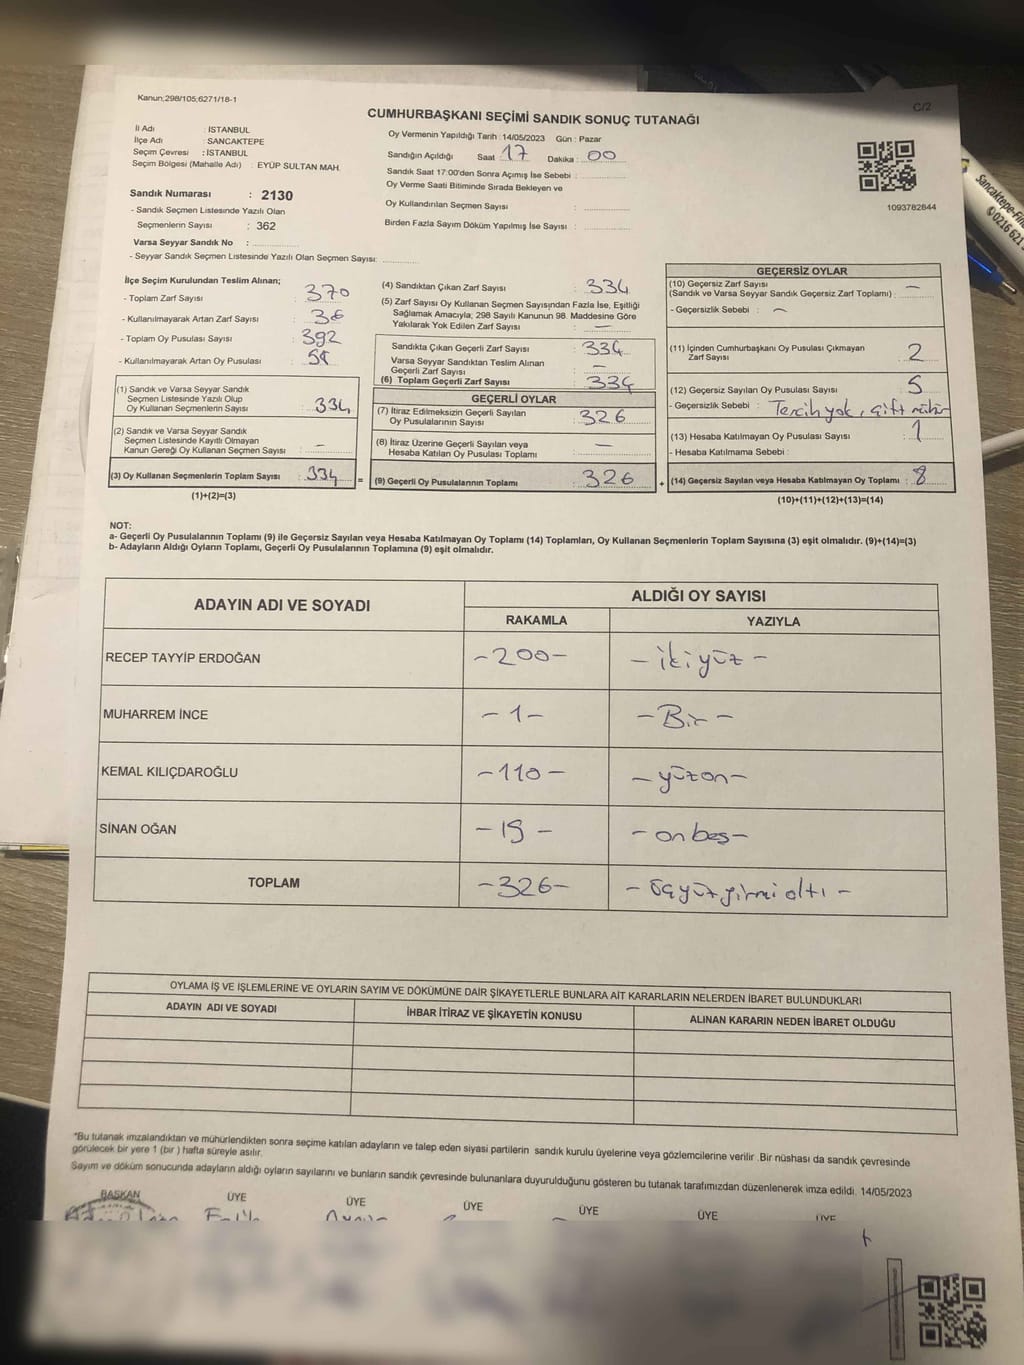 Kanun;298/105;6271/18-1
C/2
CUMHURBAŞKANI SEÇİMİ SANDIK SONUÇ TUTANAĞI
İl Adı : İSTANBUL
İlçe Adı : SANCAKTEPE
Seçim Çevresi : İSTANBUL
Seçim Bölgesi (Mahalle Adı) : EYÜP SULTAN MAH.
Sandık Numarası : 2130
- Sandık Seçmen Listesinde Yazılı Olan
Seçmenlerin Sayısı : 362
Varsa Seyyar Sandık No :
- Seyyar Sandık Seçmen Listesinde Yazılı Olan Seçmen Sayısı:
Oy Vermenin Yapıldığı Tarih : 14/05/2023 Gün : Pazar
Sandığın Açıldığı Saat : 17 Dakika : 00
Sandık Saat 17:00'den Sonra Açımış İse Sebebi :
Oy Verme Saati Bitiminde Sırada Bekleyen ve
Oy Kullandırılan Seçmen Sayısı :
Birden Fazla Sayım Döküm Yapılmış İse Sayısı :
1093782844
Sancaktepe-
0216 621
İlçe Seçim Kurulundan Teslim Alınan;
- Toplam Zarf Sayısı : 370
- Kullanılmayarak Artan Zarf Sayısı : 36
- Toplam Oy Pusulası Sayısı : 392
- Kullanılmayarak Artan Oy Pusulası :
(1) Sandık ve Varsa Seyyar Sandık
Seçmen Listesinde Yazılı Olup
Oy Kullanan Seçmenlerin Sayısı : 334
(2) Sandık ve Varsa Seyyar Sandık
Seçmen Listesinde Kayıtlı Olmayan
Kanun Gereği Oy Kullanan Seçmen Sayısı : —
(3) Oy Kullanan Seçmenlerin Toplam Sayısı : 334 =
(1)+(2)=(3)
(4) Sandıktan Çıkan Zarf Sayısı : 334
(5) Zarf Sayısı Oy Kullanan Seçmen Sayısından Fazla İse, Eşitliği
Sağlamak Amacıyla; 298 Sayılı Kanunun 98. Maddesine Göre
Yakılarak Yok Edilen Zarf Sayısı : —
Sandıkta Çıkan Geçerli Zarf Sayısı : 334
Varsa Seyyar Sandıktan Teslim Alınan
Geçerli Zarf Sayısı : —
(6) Toplam Geçerli Zarf Sayısı : 334
GEÇERLİ OYLAR
(7) İtiraz Edilmeksizin Geçerli Sayılan
Oy Pusulalarının Sayısı : 326
(8) İtiraz Üzerine Geçerli Sayılan veya
Hesaba Katılan Oy Pusulası Toplamı : —
(9) Geçerli Oy Pusulalarının Toplamı : 326 +
GEÇERSİZ OYLAR
(10) Geçersiz Zarf Sayısı
(Sandık ve Varsa Seyyar Sandık Geçersiz Zarf Toplamı) : —
- Geçersizlik Sebebi : —
(11) İçinden Cumhurbaşkanı Oy Pusulası Çıkmayan
Zarf Sayısı : 2
(12) Geçersiz Sayılan Oy Pusulası Sayısı : 5
- Geçersizlik Sebebi : Tercih yok, çift mühür
(13) Hesaba Katılmayan Oy Pusulası Sayısı : 1
- Hesaba Katılmama Sebebi :
(14) Geçersiz Sayılan veya Hesaba Katılmayan Oy Toplamı : 8
(10)+(11)+(12)+(13)=(14)
NOT:
a- Geçerli Oy Pusulalarının Toplamı (9) ile Geçersiz Sayılan veya Hesaba Katılmayan Oy Toplamı (14) Toplamları, Oy Kullanan Seçmenlerin Toplam Sayısına (3) eşit olmalıdır. (9)+(14)=(3)
b- Adayların Aldığı Oyların Toplamı, Geçerli Oy Pusulalarının Toplamına (9) eşit olmalıdır.
ADAYIN ADI VE SOYADI
ALDIĞI OY SAYISI
RAKAMLA YAZIYLA
RECEP TAYYİP ERDOĞAN -200- - iki yüz -
MUHARREM İNCE -1- - Bir -
KEMAL KILIÇDAROĞLU -110- - yüzon -
SİNAN OĞAN -15- - onbeş -
TOPLAM -326- - üçyüzyirmialtı -
OYLAMA İŞ VE İŞLEMLERİNE VE OYLARIN SAYIM VE DÖKÜMÜNE DAİR ŞİKAYETLERLE BUNLARA AİT KARARLARIN NELERDEN İBARET BULUNDUKLARI
ADAYIN ADI VE SOYADI İHBAR İTİRAZ VE ŞİKAYETİN KONUSU ALINAN KARARIN NEDEN İBARET OLDUĞU
*Bu tutanak imzalandıktan ve mühürlendikten sonra seçime katılan adayların ve talep eden siyasi partilerin sandık kurulu üyelerine veya gözlemcilerine verilir .Bir nüshası da sandık çevresinde
görülecek bir yere 1 (bir ) hafta süreyle asılır.
Sayım ve döküm sonucunda adayların aldığı oyların sayılarını ve bunların sandık çevresinde bulunanlara duyurulduğunu gösteren bu tutanak tarafımızdan düzenlenerek imza edildi. 14/05/2023
BAŞKAN ÜYE ÜYE ÜYE ÜYE ÜYE ÜYE